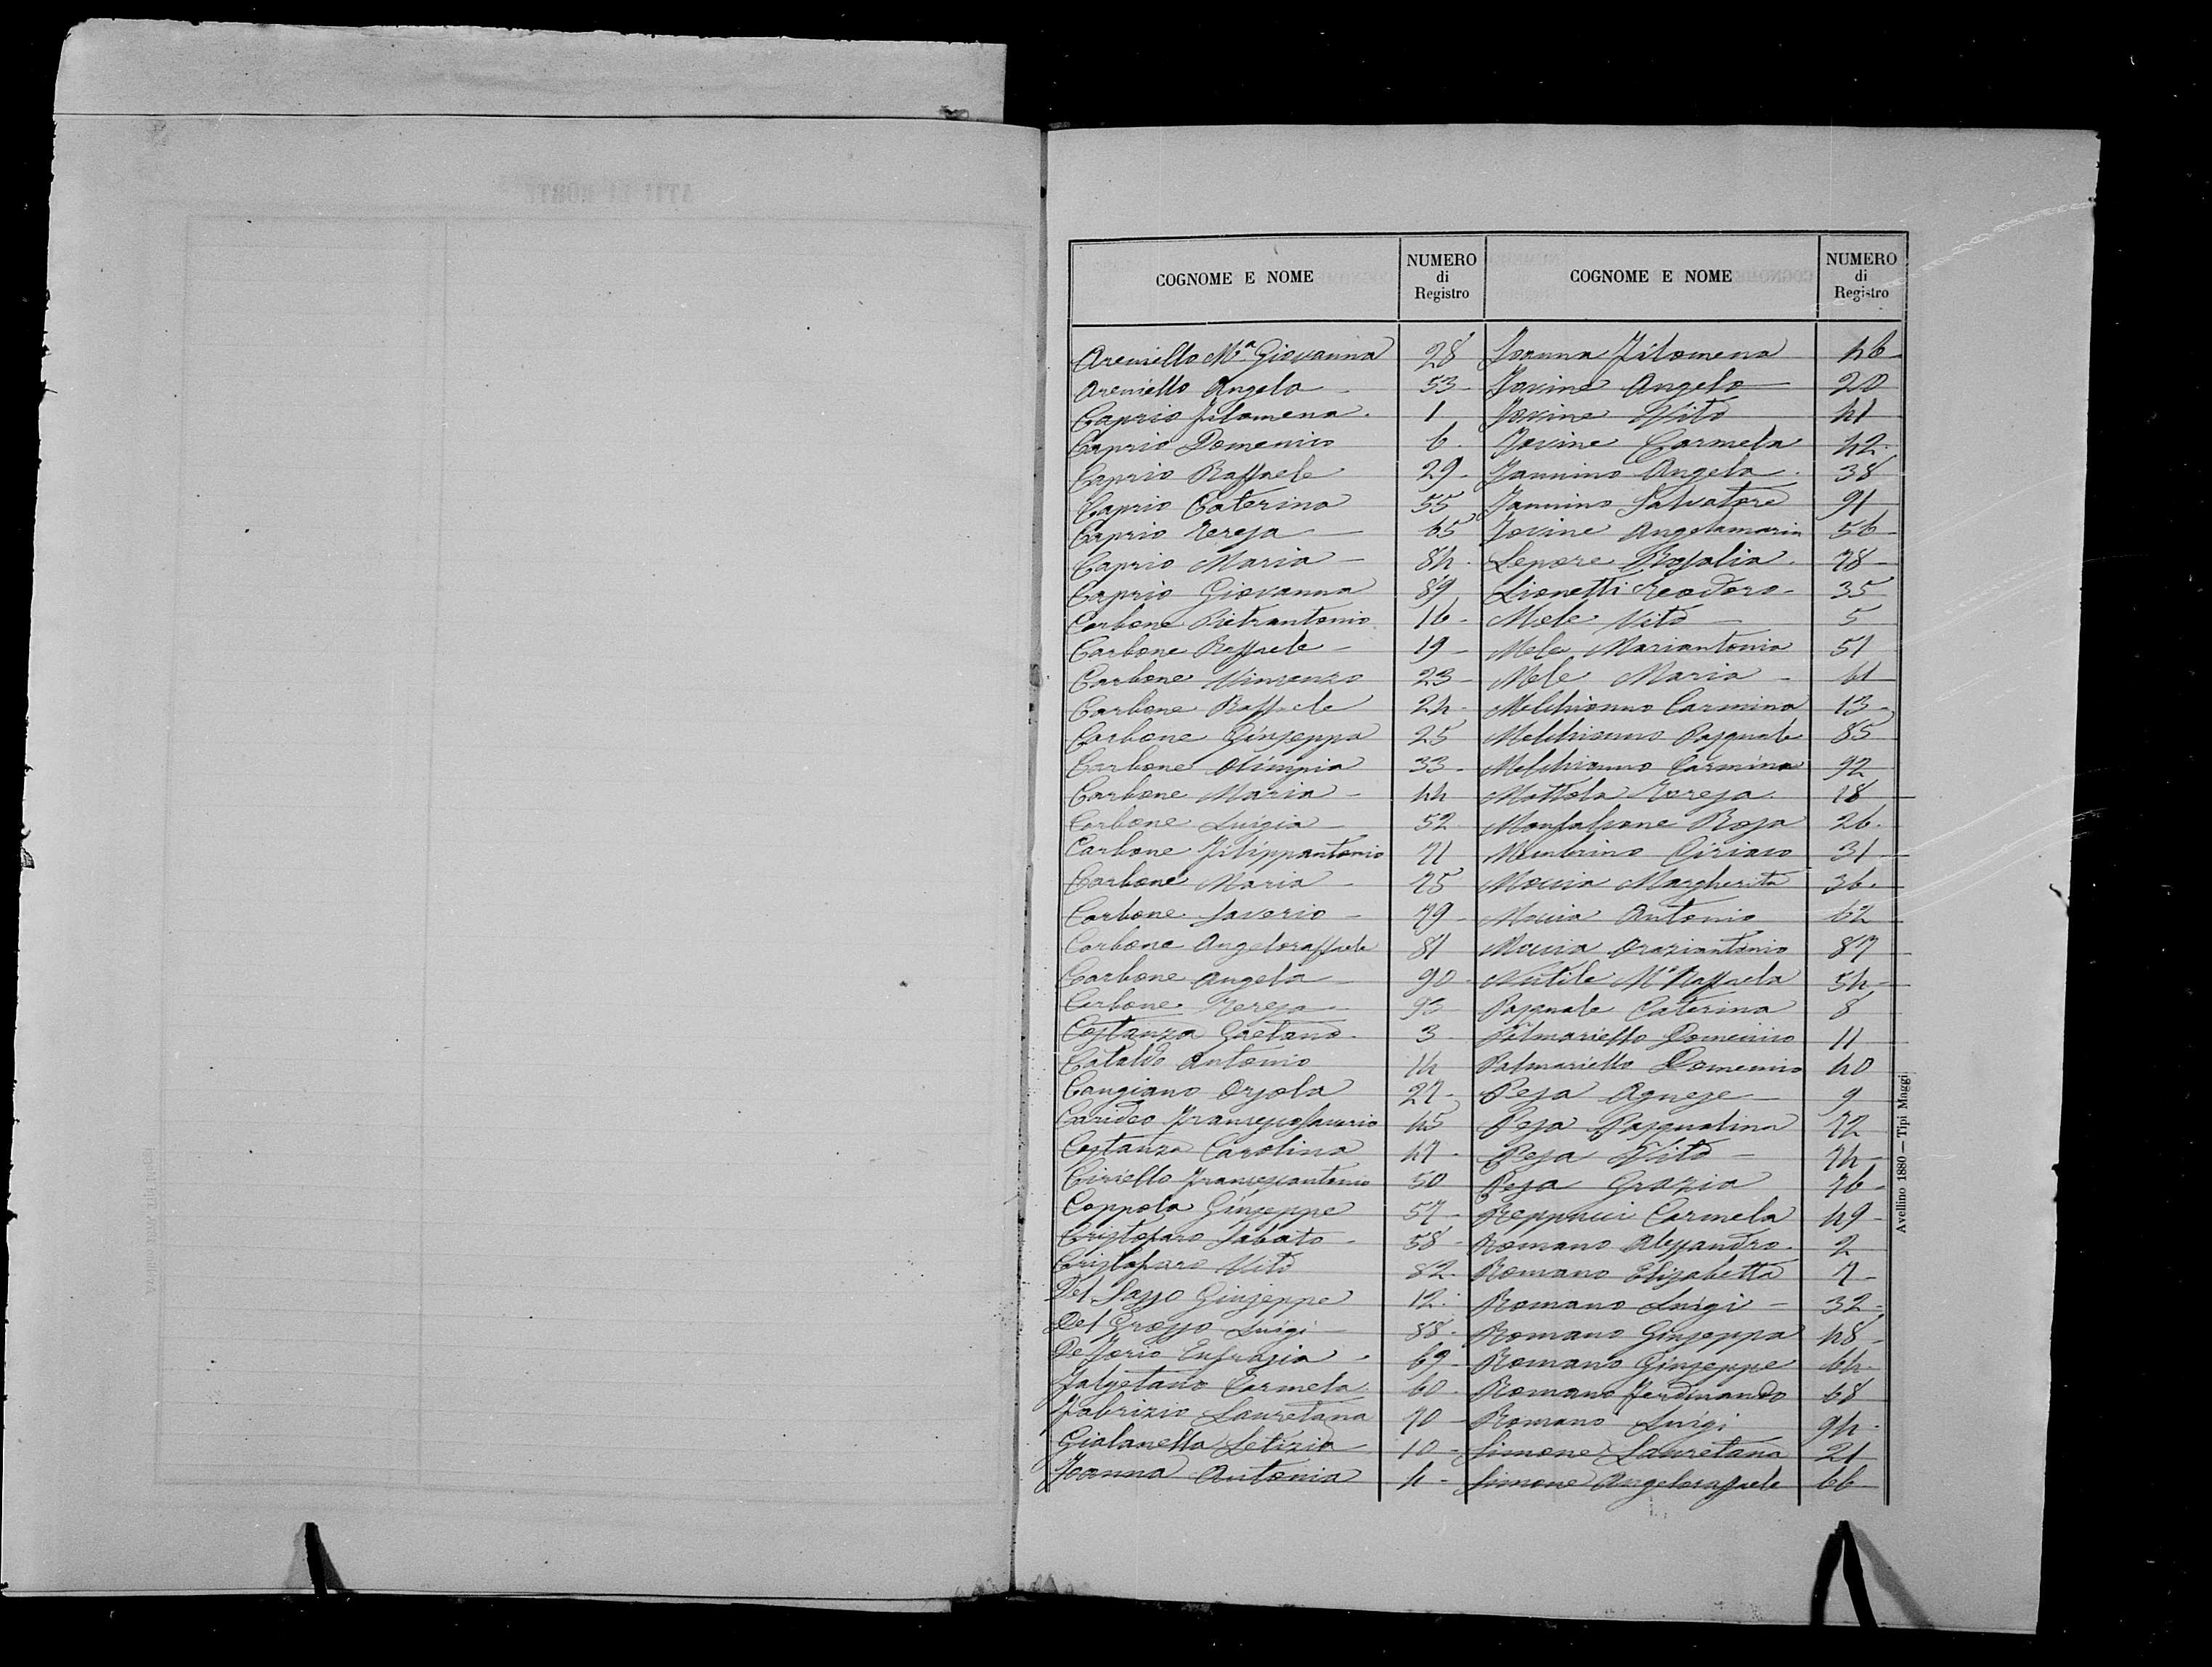 COGNOME E NOME
NUMERO
di
Registro
COGNOME E NOME
NUMERO
di
Registro
Areniello Mª Giovanna 28 Joanna Filomena 46
Areniello Angela 53 Jovine Angelo 20
Caprio Filomena 1 Jovine Vito 41
Caprio Domenico 6 Jovine Carmela 42
Caprio Raffaele 29 Jannino Angela 38
Caprio Caterina 55 Jannino Salvatore 91
Caprio Teresa 65 Jovine Angelamaria 56
Caprio Maria 84 Lepore Rosalia 78
Caprio Giovanna 89 Lionetti Teodoro 35
Carbone Pietrantonio 16 Mele Vito 5
Carbone Raffaele 19 Mele Mariantonia 51
Carbone Vincenzo 23 Mele Maria 61
Carbone Raffaele 24 Melchionno Carmina 13
Carbone Giuseppa 25 Melchionno Pasquale 85
Carbone Olimpia 33 Melchionno Carmina 92
Carbone Maria 44 Mottola Teresa 18
Carbone Luigia 52 Monfalcone Rosa 26
Carbone Filippantonio 71 Membrino Ciriaco 31
Carbone Maria 75 Moccia Margherita 36
Carbone Saverio 79 Moccia Antonio 62
Carbone Angeloraffaele 81 Moccia Oraziantonio 87
Carbone Angela 90 Nutile Mª Raffaela 54
Carbone Teresa 93 Pasquale Caterina 8
Costanza Gaetano 3 Palmariello Domenico 11
Cataldo Antonio 14 Palmariello Domenico 40
Cangiano Orsola 27 Pesa Agnese 9
Carideo Francescosaverio 45 Pesa Pasqualina 72
Costanza Carolina 47 Pesa Vito 74
Ciriello Francescantonio 50 Pesa Grazia 76
Coppola Giuseppe 57 Reppucci Carmela 49
Cristofaro Sabato 58 Romano Alessandro 2
Cristofaro Vito 82 Romano Elisabetta 7
Del Sasso Giuseppe 12 Romano Luigi 32
Del Grosso Luigi 88 Romano Giuseppa 48
De Jorio Eufrasia 69 Romano Giuseppe 64
Falsetano Carmela 60 Romano Ferdinando 68
Fabrizio Lauretana 70 Romano Luigi 94
Gialanella Letizia 10 Simone Lauretana 21
Joanna Antonia 4 Simone Angeloraffaele 66
Avellino 1880 — Tipi Maggi